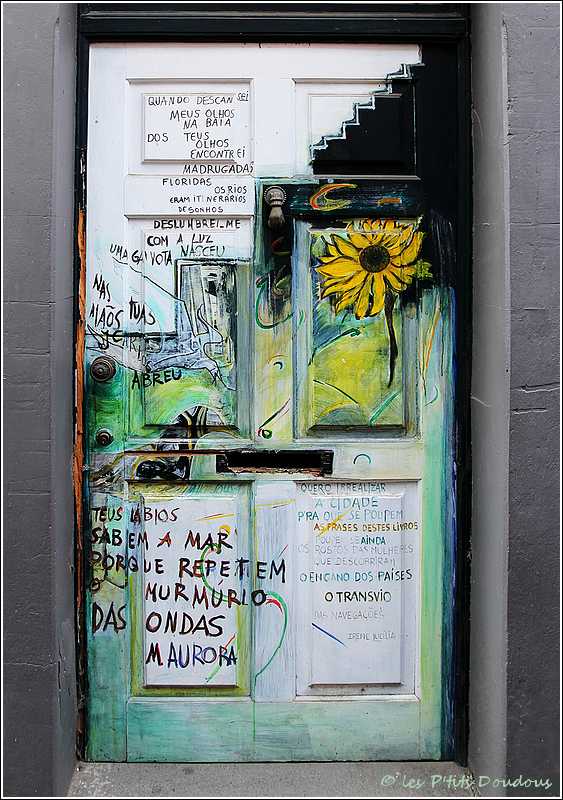 QUANDO DESCANSEI
MEUS OLHOS
NA BAIA
DOS TEUS
OLHOS
ENCONTREI
MADRUGADAS
FLORIDAS
OS RIOS
ERAM ITINERÁRIOS
DE SONHOS
DESLUMBREI-ME
COM A LUZ
UMA GAIVOTA NASCEU
NAS
TUAS
MÃOS
ABREU
TEUS LÁBIOS
SABEM A MAR
PORQUE REPETEM
O MURMÚRIO
DAS ONDAS
M AURORA
QUERO IRREALIZAR
A CIDADE
P'RA QUE SE POUPEM
AS FRASES DESTES LIVROS
SE AINDA
OS ROSTOS DAS MULHERES
QUE DESCOBRIRAM
O ENGANO DOS PAÍSES
O TRANSVIO
DAS NAVEGAÇÕES
IRENE LUCÍLIA
© les P'tits Doudous